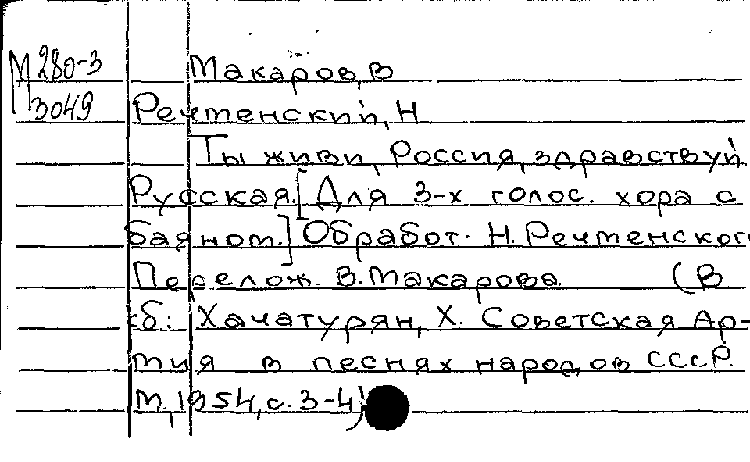 М 280-3
3049
Макаров, В
Речменский, Н
Ты живи, Россия, здравствуй
Русская. [Для 3-х голос. хора с
баяном.] Обработ. Н. Речменског
Перелож. В. Макарова (В
сб: Хачатурян, Х. Советская Ар-
мия в песнях народов СССР.
М, 1954, с. 3-4)